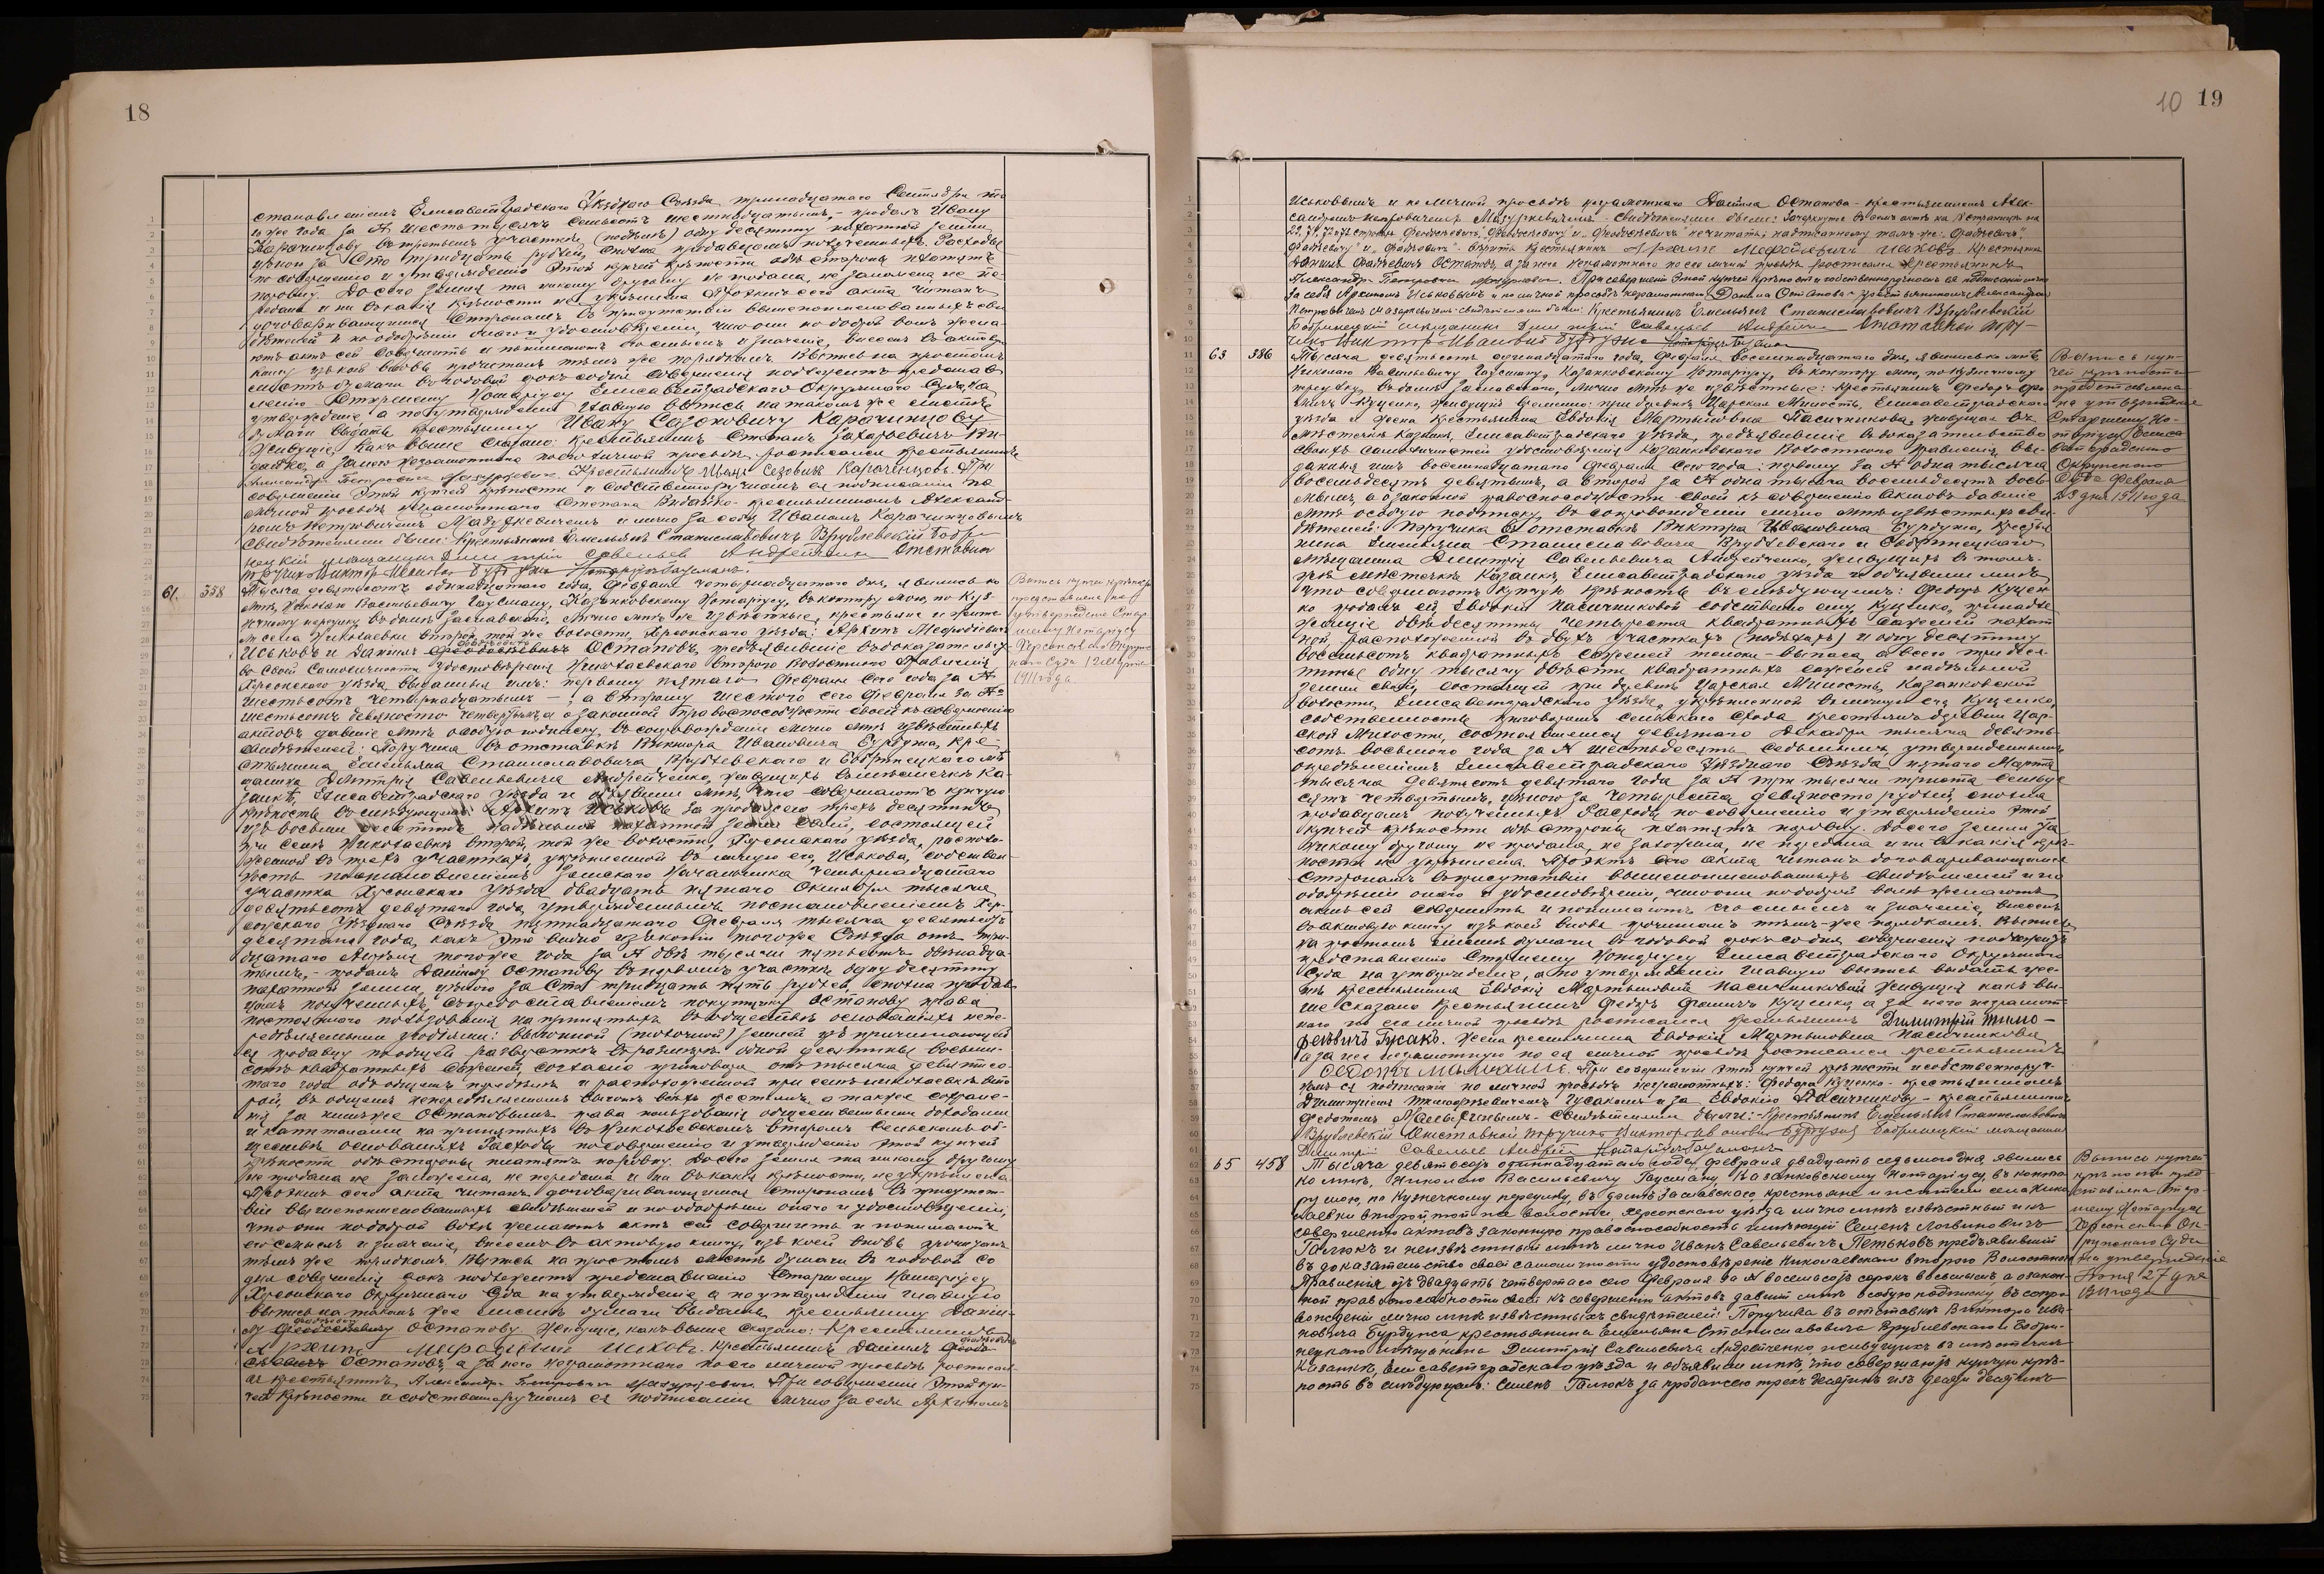 18
становленіемъ Елисаветградскаго Уѣзднаго Съѣзда тринадцатаго Сентября то
го же года за № шесть тысячъ семьсотъ шестнадцатымъ, - продалъ Ивану
Карачинцову въ третьемъ участкѣ (полѣ) одну десятину пахатной земли
цѣною за Сто тридцать рублей, сполна продавцомъ полученныхъ. Расходы
по совершенію и утвержденію этой купчей крѣпости обѣ стороны платятъ
поровну. До сего земля та никому другому не продана, не заложена не пе-
редана и ни въ какія крѣпости не укрѣплена. Проэктъ сего акта читанъ
договаривающимся сторонамъ въ присутствіи вышепоименованныхъ сви
дѣтелей и по одобреніи онаго и удостовѣреніи, что они по доброй волѣ жела-
ютъ актъ сей совершить и понимаютъ его смыслъ и значеніе, внесенъ въ актовую
книгу изъ коей вновь прочитанъ тѣмъ же порядкомъ. Выпись на простомъ
листѣ бумаги въ годовой срокъ со дня совершенія подлежитъ представ
ленію Старшему Нотаріусу Елисаветградскаго Окружнаго Суда, на
утвержденіе, а по утвержденіи главную выпись на такомъ же листѣ
бумаги выдать крестьянину Ивану Сазоновичу Карачинцову.
Живущіе, какъ выше сказано: Крестьянинъ Степанъ Захарьевичъ Ви-
дайко, а за него неграмотнаго по его личной просьбѣ росписался крестьянинъ
Александръ Петровичъ Мазуркевичъ. Крестьянинъ Иванъ Сезовичъ Караченцовъ. При
совершеніи этой купчей крѣпости и собственноручномъ ея подписаніи по
личной просьбѣ неграмотнаго Степана Видайко - крестьяниномъ Александ-
ромъ Петровичемъ Мазуркевичемъ и лично за себя Иваномъ Карачинцовымъ
свидѣтелями были: Крестьянинъ Емельянъ Станиславовичъ Врублевскій Бобри
нецкій мѣщанинъ Дмитрій Савельевъ Андрейченко Отставной
поручикъ Викторъ Ивановъ Бурдузя Нотаріусъ Гаусманъ.
61. 358 Тысяча девятьсотъ одиннадцатаго года, Февраля четырнадцатаго дня, явились ко
мнѣ, Николаю Васильевичу Гаусману, Казанковскому Нотаріусу, въ контору мою, по Куз-
нечному переулку въ домѣ Заславскаго, лично мнѣ не извѣстные, крестьяне и жите-
ли села Николаевки второй, той же волости, Херсонскаго уѣзда: Архипъ Мефодіевичъ
Иськовъ и Даніилъ Феодосіевичъ Остаповъ, предъявившіе въ доказательст
во своей самоличности удостовѣренія Николаевскаго второго Волостного Правленія,
Херсонскаго уѣзда, выданныя имъ: первому пятаго Февраля сего года за №
шестьсотъ четырнадцатымъ -, а второму шестого сего Февраля за №
шестьсотъ девяносто четвертымъ, а о законной правоспособности своей къ совершенію
актовъ давшіе мнѣ особую подписку, въ сопровожденіи лично мнѣ извѣстныхъ
свидѣтелей: Поручика въ отставкѣ Виктора Ивановича Бурдужа, кре-
стьянина Емельяна Станиславовича Врублевскаго и Бобринецкаго мѣ
щанина Дмитрія Савельевича Андрейченко, живущихъ въ мѣстечкѣ Ка-
занкѣ, Елисаветградскаго уѣзда и объявили мнѣ, что совершаютъ купчую
крѣпость въ слѣдующемъ: Архипъ Иськовъ за продажею трехъ десятинъ
изъ восьми десятинъ надѣльной пахатной земли своей, состоящей
при селѣ Николаевкѣ второй, той же волости, Херсонскаго уѣзда, располо-
женной въ трехъ участкахъ, укрѣпленной въ личную его, Иськова, собствен-
ность постановленіемъ Земскаго Начальника четырнадцатаго
участка Херсонскаго уѣзда двадцать пятаго Октября тысяча
девятьсотъ девятаго года, утвержденнымъ постановленіемъ Хер-
сонскаго Уѣзднаго Съѣзда пятнадцатаго Февраля тысяча девятьсотъ
десятаго года, какъ это видно изъ копіи того же Съѣзда отъ три-
дцатаго Апрѣля того же года за № двѣ тысячи пятьсотъ двѣнадца-
тымъ, - продалъ Даніилу Остапову въ первомъ участкѣ одну десятину
пахатной земли, цѣною за Сто тридцать пять рублей, сполна продав
цомъ полученныхъ, съ предоставленіемъ покупщику Остапову права
постояннаго пользованія на принятыхъ въ обществѣ основаніяхъ непе-
редѣляемыми угодьями: выгонной (толочной) землей изъ причитающейся
ся продавцу по общей разверсткѣ въ размѣрѣ одной десятины восьми-
сотъ квадратныхъ саженей, согласно приговора отъ тысяча девятисо-
таго года объ общемъ передѣлѣ и расположенной при селѣ Николаевкѣ вто
рой, въ общемъ непередѣляемомъ выгонѣ всѣхъ десятинъ, а также сохране-
нія за нимъ же Остаповымъ права пользованія общественными доходами
и капиталами на принятыхъ въ Николаевскомъ второмъ Сельскомъ об-
ществѣ основаніяхъ. Расходы по совершенію и утвержденію этой купчей
крѣпости обѣ стороны платятъ поровну. До сего земля та никому другому
не продана, не заложена, не передана и ни въ какія крѣпости не укрѣплена.
Проэктъ сего акта читанъ договаривающимся сторонамъ въ присутст-
віи вышепоименованныхъ свидѣтелей и по одобреніи онаго и удостовѣреніи,
что они по доброй волѣ желаютъ актъ сей совершить и понимаютъ
его смыслъ и значеніе, внесенъ въ актовую книгу, изъ коей вновь прочитанъ
тѣмъ же порядкомъ. Выпись на простомъ листѣ бумаги въ годовой со
дня совершенія срокъ подлежитъ представленію Старшему Нотаріусу
Херсонскаго Окружнаго Суда на утвержденіе, а по утвержденіи главную
выпись на такомъ же листѣ бумаги выдать крестьянину Дании-
лу Феодосіевичу Остапову. Живущіе, какъ выше сказано: Крестьянинъ
Архипъ Мефодіевичъ Иськовъ. Крестьянинъ Даніилъ Феодо-
сіевичъ Остаповъ, а за него неграмотнаго по его личной просьбѣ росписал
ся крестьянинъ Александръ Петровичъ Мазуркевичъ. При совершеніи этой куп-
чей крѣпости и собственноручномъ ея подписаніи лично за себя Архипомъ
Выпись купчей крѣпости
представлена на
утвержденіе Стар
шему Нотаріусу
Херсонскаго Окруж
наго Суда 12 Марта
1911 года.
10 19
Иськовымъ и по личной просьбѣ неграмотнаго Даніила Остапова - крестьяниномъ Алек-
сандромъ Петровичемъ Мазуркевичемъ - свидѣтелями были: Зачеркнутое въ семъ актѣ на 18 страницѣ на
Фадѣевичу" и "Фадѣевичъ" - вѣрить. Крестьянинъ Архипъ Мефодіевичъ Иськовъ. Крестьянинъ
Даніилъ Фадѣевичъ Остаповъ, а за него неграмотнаго по его личной просьбѣ росписался крестьянинъ
Александръ Петровичъ Мазуркевичъ. При совершеніи этой купчей крѣпости и собственноручномъ ея подписаніи лично
за себя Архипомъ Иськовымъ и по личной просьбѣ неграмотнаго Даніила Остапова - крестьяниномъ Александромъ
Петровичемъ Мазуркевичемъ свидѣтелями были: Крестьянинъ Емельянъ Станиславовичъ Врублевскій
Бобринецкій мѣщанинъ Дмитрій Савельевъ Андрейченко Отставной пору-
чикъ Викторъ Ивановъ Бурдузя Нотаріусъ Гаусманъ
63 386 Тысяча девятьсотъ одиннадцатаго года, Февраля восемнадцатаго дня, явились ко мнѣ,
Николаю Васильевичу Гаусману, Казанковскому Нотаріусу, въ контору мою, по Кузнечному
переулку, въ домѣ Заславскаго, лично мнѣ не извѣстные: крестьянинъ Федоръ Фо
мичъ Куценко, живущій временно при деревнѣ Царская Милость, Елисаветградскаго
уѣзда и жена крестьянина Евдокія Мартыновна Пасичникова, живущая въ
мѣстечкѣ Казанкѣ, Елисаветградскаго уѣзда, предъявившіе въ доказательство
своихъ самоличностей удостовѣренія Казанковскаго Волостного Правленія, вы-
данныя имъ восемнадцатаго Февраля сего года: первому за № одна тысяча
восемьдесятъ девятымъ, а второй за № одна тысяча восемьдесятъ вось
мымъ, а о законной правоспособности своей къ совершенію актовъ давшіе
мнѣ особую подписку, въ сопровожденіи лично мнѣ извѣстныхъ сви
дѣтелей: Поручика въ отставкѣ Виктора Ивановича Бурдужа, кресть
янина Емельяна Станиславовича Врублевскаго и Бобринецкаго
мѣщанина Дмитрія Савельевича Андрейченко, живущихъ въ томъ-
же мѣстечкѣ Казанкѣ, Елисаветградскаго уѣзда и объявили мнѣ,
что совершаютъ купчую крѣпость въ слѣдующемъ: Федоръ Куцен-
ко продалъ ей, Евдокіи Пасичниковой собственно ему, Куценко, принадле
жащіе двѣ десятины четыреста квадратныхъ саженей пахат
ной расположенной въ двухъ участкахъ (поляхъ) и одну десятину
восемьсотъ квадратныхъ саженей толоки - выпаса, а всего три деся-
тины одну тысячу двѣсти квадратныхъ саженей надѣльной
земли своей, состоящей при деревнѣ Царская Милость, Казанковской
волости, Елисаветградскаго уѣзда, укрѣпленной въ личную его, Куценко,
собственность приговоромъ сельскаго схода крестьянъ деревни Цар-
ской Милости, состоявшемся девятаго Декабря тысяча девять-
сотъ восьмого года за № шестьдесятъ седьмымъ, утвержденнымъ
опредѣленіемъ Елисаветградскаго Уѣзднаго Съѣзда пятаго Марта
тысяча девятьсотъ девятаго года за № три тысячи триста семьде
сятъ четвертымъ, цѣною за четыреста девяносто рублей, сполна
продавцомъ полученныхъ. Расходы по совершенію и утвержденію этой
купчей крѣпости обѣ стороны платятъ поровну. До сего земля та
никому другому не продана, не заложена, не передана и ни въ какія крѣ-
пости не укрѣплена. Проэктъ сего акта читанъ договаривающимся
сторонамъ въ присутствіи вышепоименованныхъ свидѣтелей и по
одобреніи онаго и удостовѣреніи, что они по доброй волѣ желаютъ
актъ сей совершить и понимаютъ его смыслъ и значеніе, внесенъ
въ актовую книгу изъ коей вновь прочитанъ тѣмъ-же порядкомъ. Выпись
на простомъ листѣ бумаги въ годовой срокъ со дня совершенія подлежитъ
представленію Старшему Нотаріусу Елисаветградскаго Окружнаго
Суда на утвержденіе, а по утвержденіи главную выпись выдать же-
нѣ крестьянина Евдокіи Мартыновнѣ Пасичниковой. Живущіе какъ вы-
ше сказано Крестьянинъ Федоръ Фомичъ Куценко, а за него неграмот-
наго по его личной просьбѣ росписался крестьянинъ Димитрій Тимо-
феевичъ Гусакъ. Жена крестьянина Евдокія Мартыновна Пасичникова
а за нее неграмотную по ея личной просьбѣ росписался крестьянинъ
Федотъ Малыхинъ. При совершеніи этой купчей крѣпости и собственноруч-
номъ ея подписаніи по личной просьбѣ неграмотныхъ: Федора Куценко - крестьяниномъ
Димитріемъ Тимофеевичемъ Гусакомъ и за Евдокію Пасичникову - крестьяниномъ
Федотомъ Малыхинымъ - свидѣтелями были: - Крестьянинъ Емельянъ Станиславовичъ
Врублевскій Отставной поручикъ Викторъ Ивановъ Бурдузя Бобринецкій мѣщанинъ
Дмитрій Савельевъ Андрей Нотаріусъ Гаусманъ
65 458 Тысяча девятьсотъ одиннадцатаго года, Февраля двадцать седьмого дня, явились
ко мнѣ, Николаю Васильевичу Гаусману, Казанковскому Нотаріусу, въ конто
ру мою, по Кузнечному переулку, въ домѣ Заславскаго, крестьяне и жители села Нико
лаевки второй, той же волости, Херсонскаго уѣзда лично мнѣ извѣстный и къ
совершенію актовъ законную правоспособность имѣющій Семенъ Логвиновичъ
Галюкъ и неизвѣстный мнѣ лично Иванъ Савельевичъ Петьковъ предъявившій
въ доказательство своей самоличности удостовѣреніе Николаевскаго второго Волостного
Правленія отъ двадцать четвертаго сего Февраля за № восемьсотъ сорокъ восьмымъ, а о закон-
ной правоспособности своей къ совершенію актовъ давшій мнѣ особую подписку, въ сопро-
вожденіи лично мнѣ извѣстныхъ свидѣтелей: Поручика въ отставкѣ Виктора Ива-
новича Бурдужа, крестьянина Емельяна Станиславовича Врублевскаго и Бобри-
нецкаго мѣщанина Дмитрія Савельевича Андрейченко, живущихъ въ мѣстечкѣ
Казанкѣ, Елисаветградскаго уѣзда и объявили мнѣ, что совершаютъ купчую крѣ-
пость въ слѣдующемъ: Семенъ Галюкъ за продажею трехъ десятинъ изъ десяти десятинъ
Выпись куп-
чей крѣпости
представлена
на утвержденіе
Старшему Но-
таріусу Елиса
ветградскаго
Окружнаго
Суда Февраля
28 дня 1911 года
Выпись купчей
крѣпости пред
ставлена Стар-
шему Нотаріусу
Херсонскаго Ок-
ружнаго Суда
на утвержденіе
27 дня
1911 года